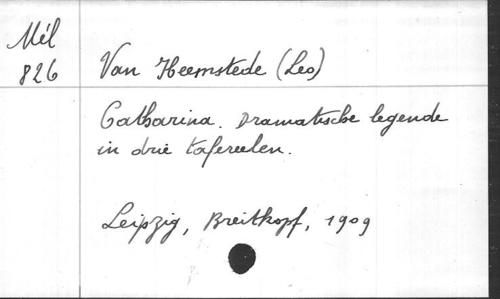 Mél
826
Van Heemstede (Leo)
Catharina. Dramatische legende
in drie tafereelen.
Leipzig, Breitkopf, 1909